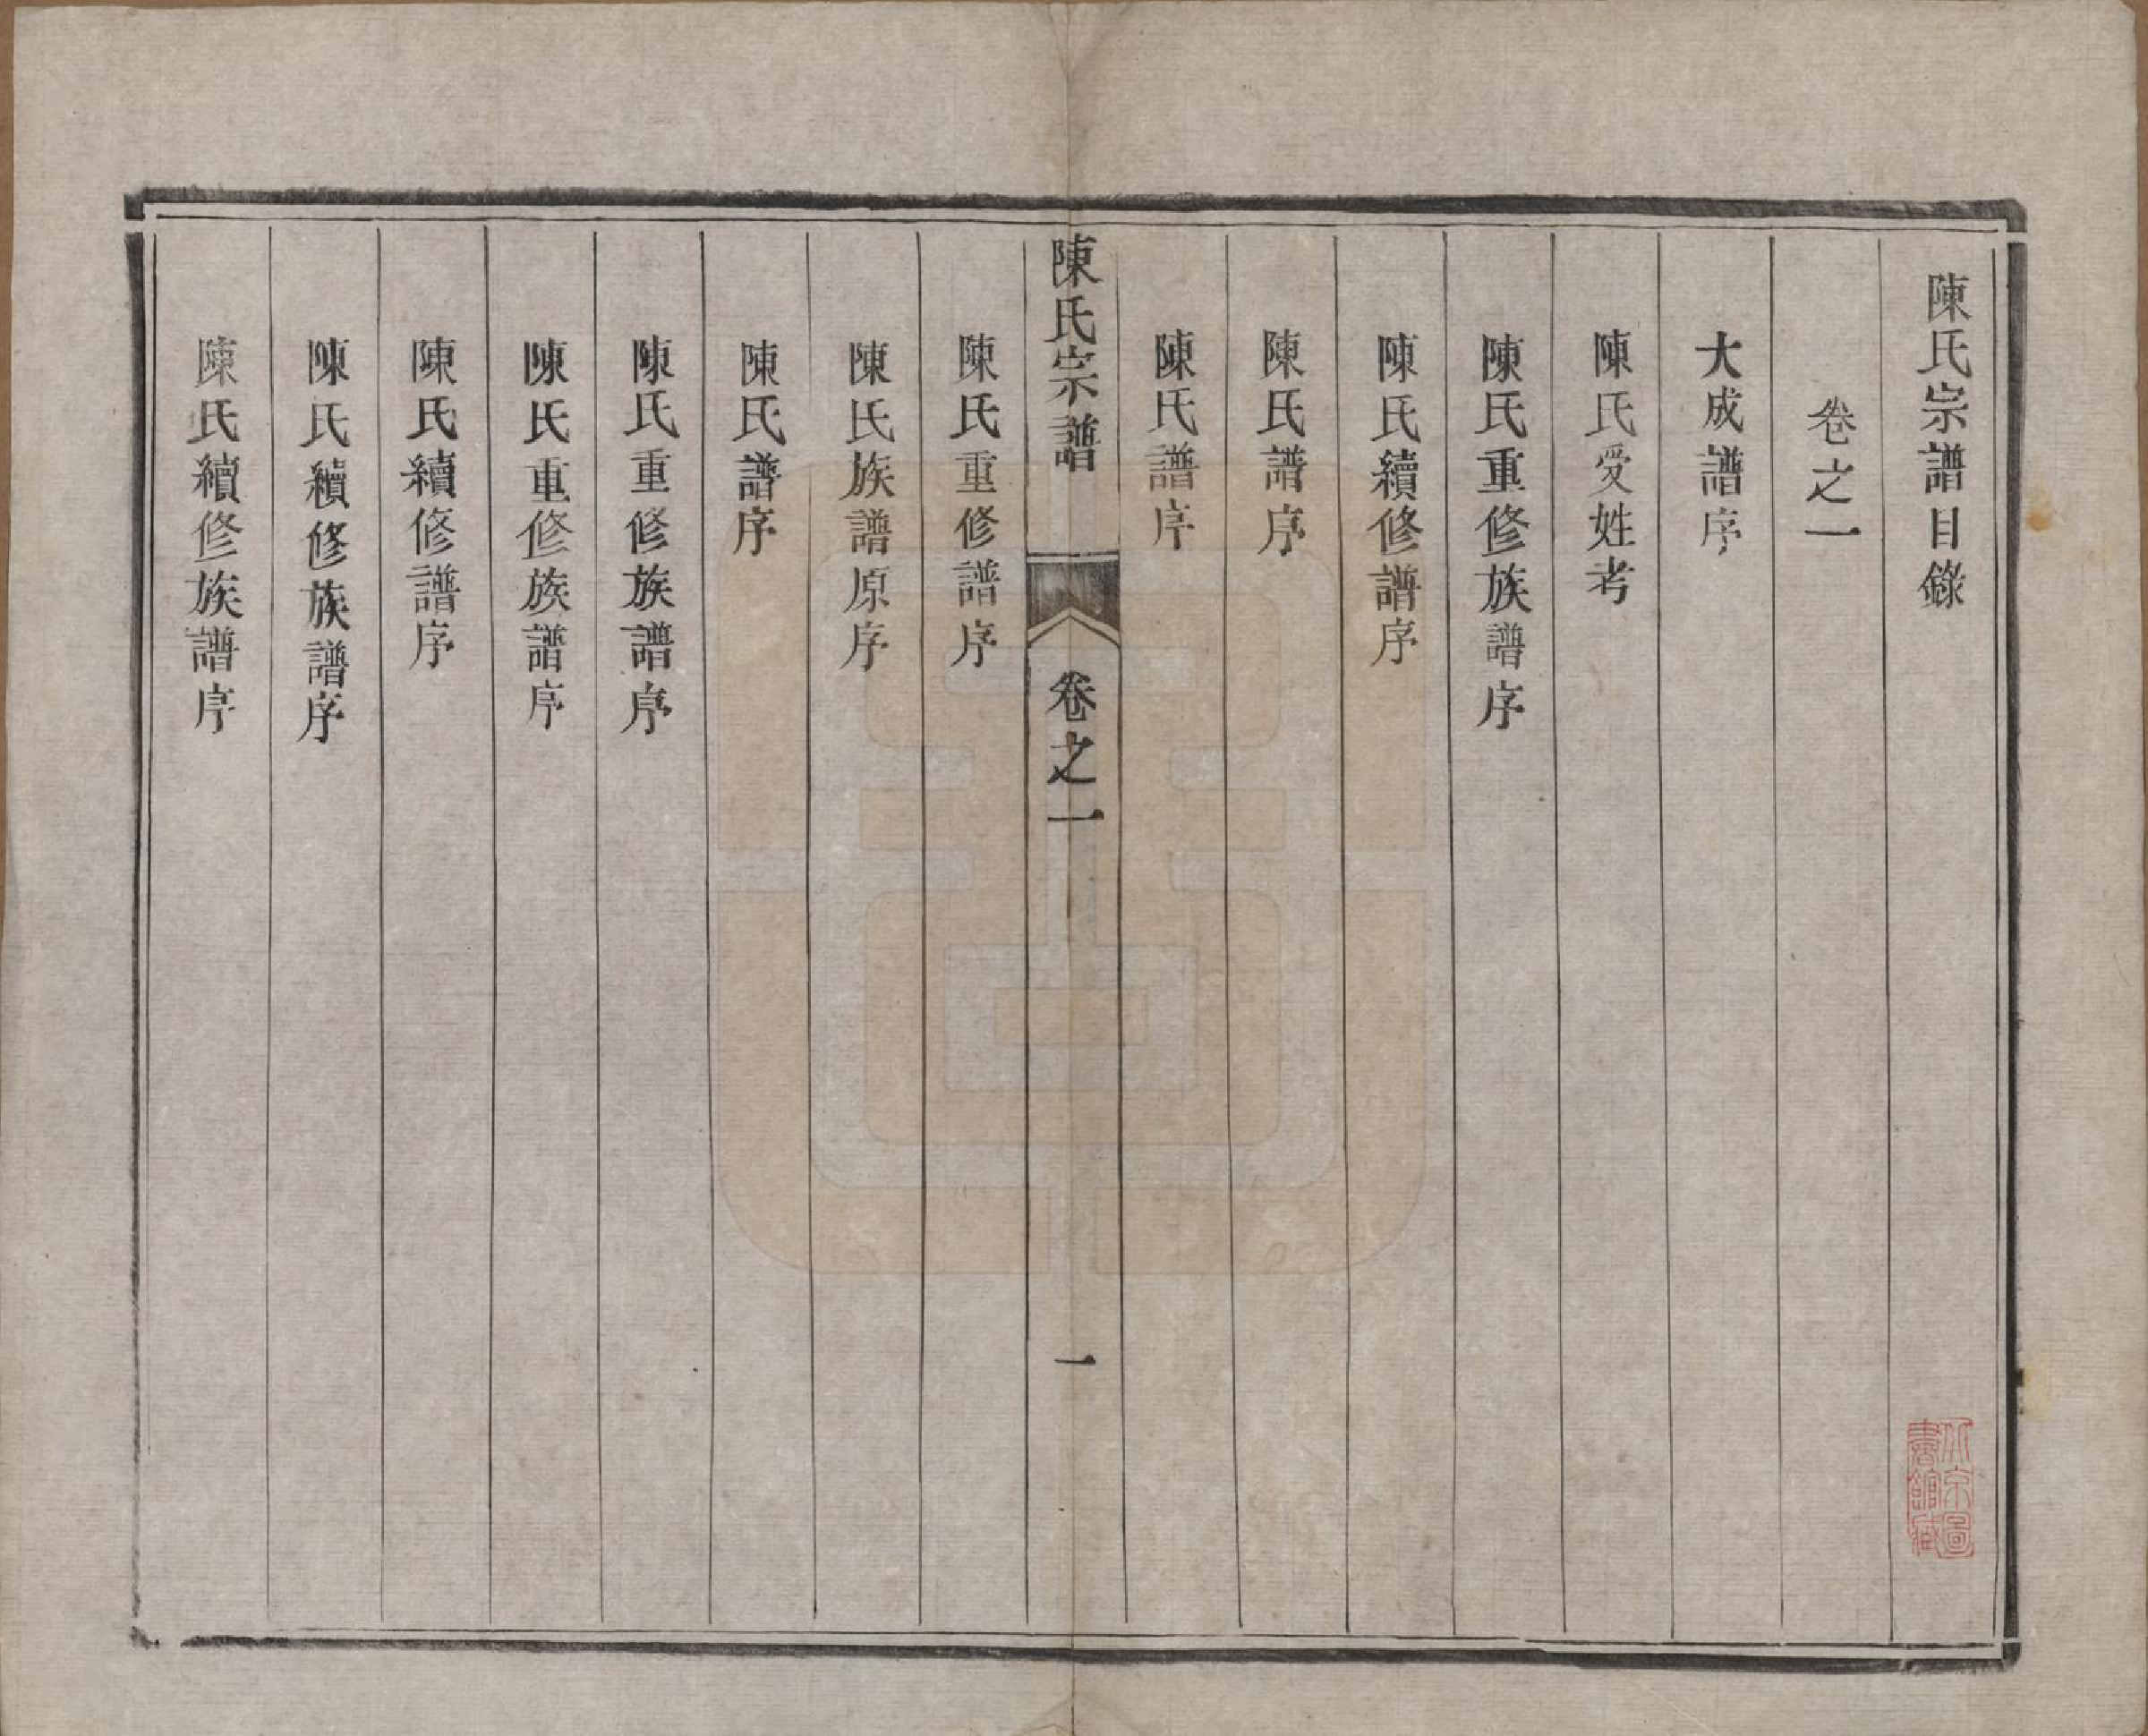 陳氏宗譜目錄
卷之一
大成譜序
陳氏受姓考
陳氏重修族譜序
陳氏續修譜序
陳氏譜序
陳氏譜序
陳氏宗譜
卷之一
一
陳氏重修譜序
陳氏族譜原序
陳氏譜序
陳氏重修族譜序
陳氏重修族譜序
陳氏續修譜序
陳氏續修族譜序
陳氏續修族譜序
北京圖
書館藏